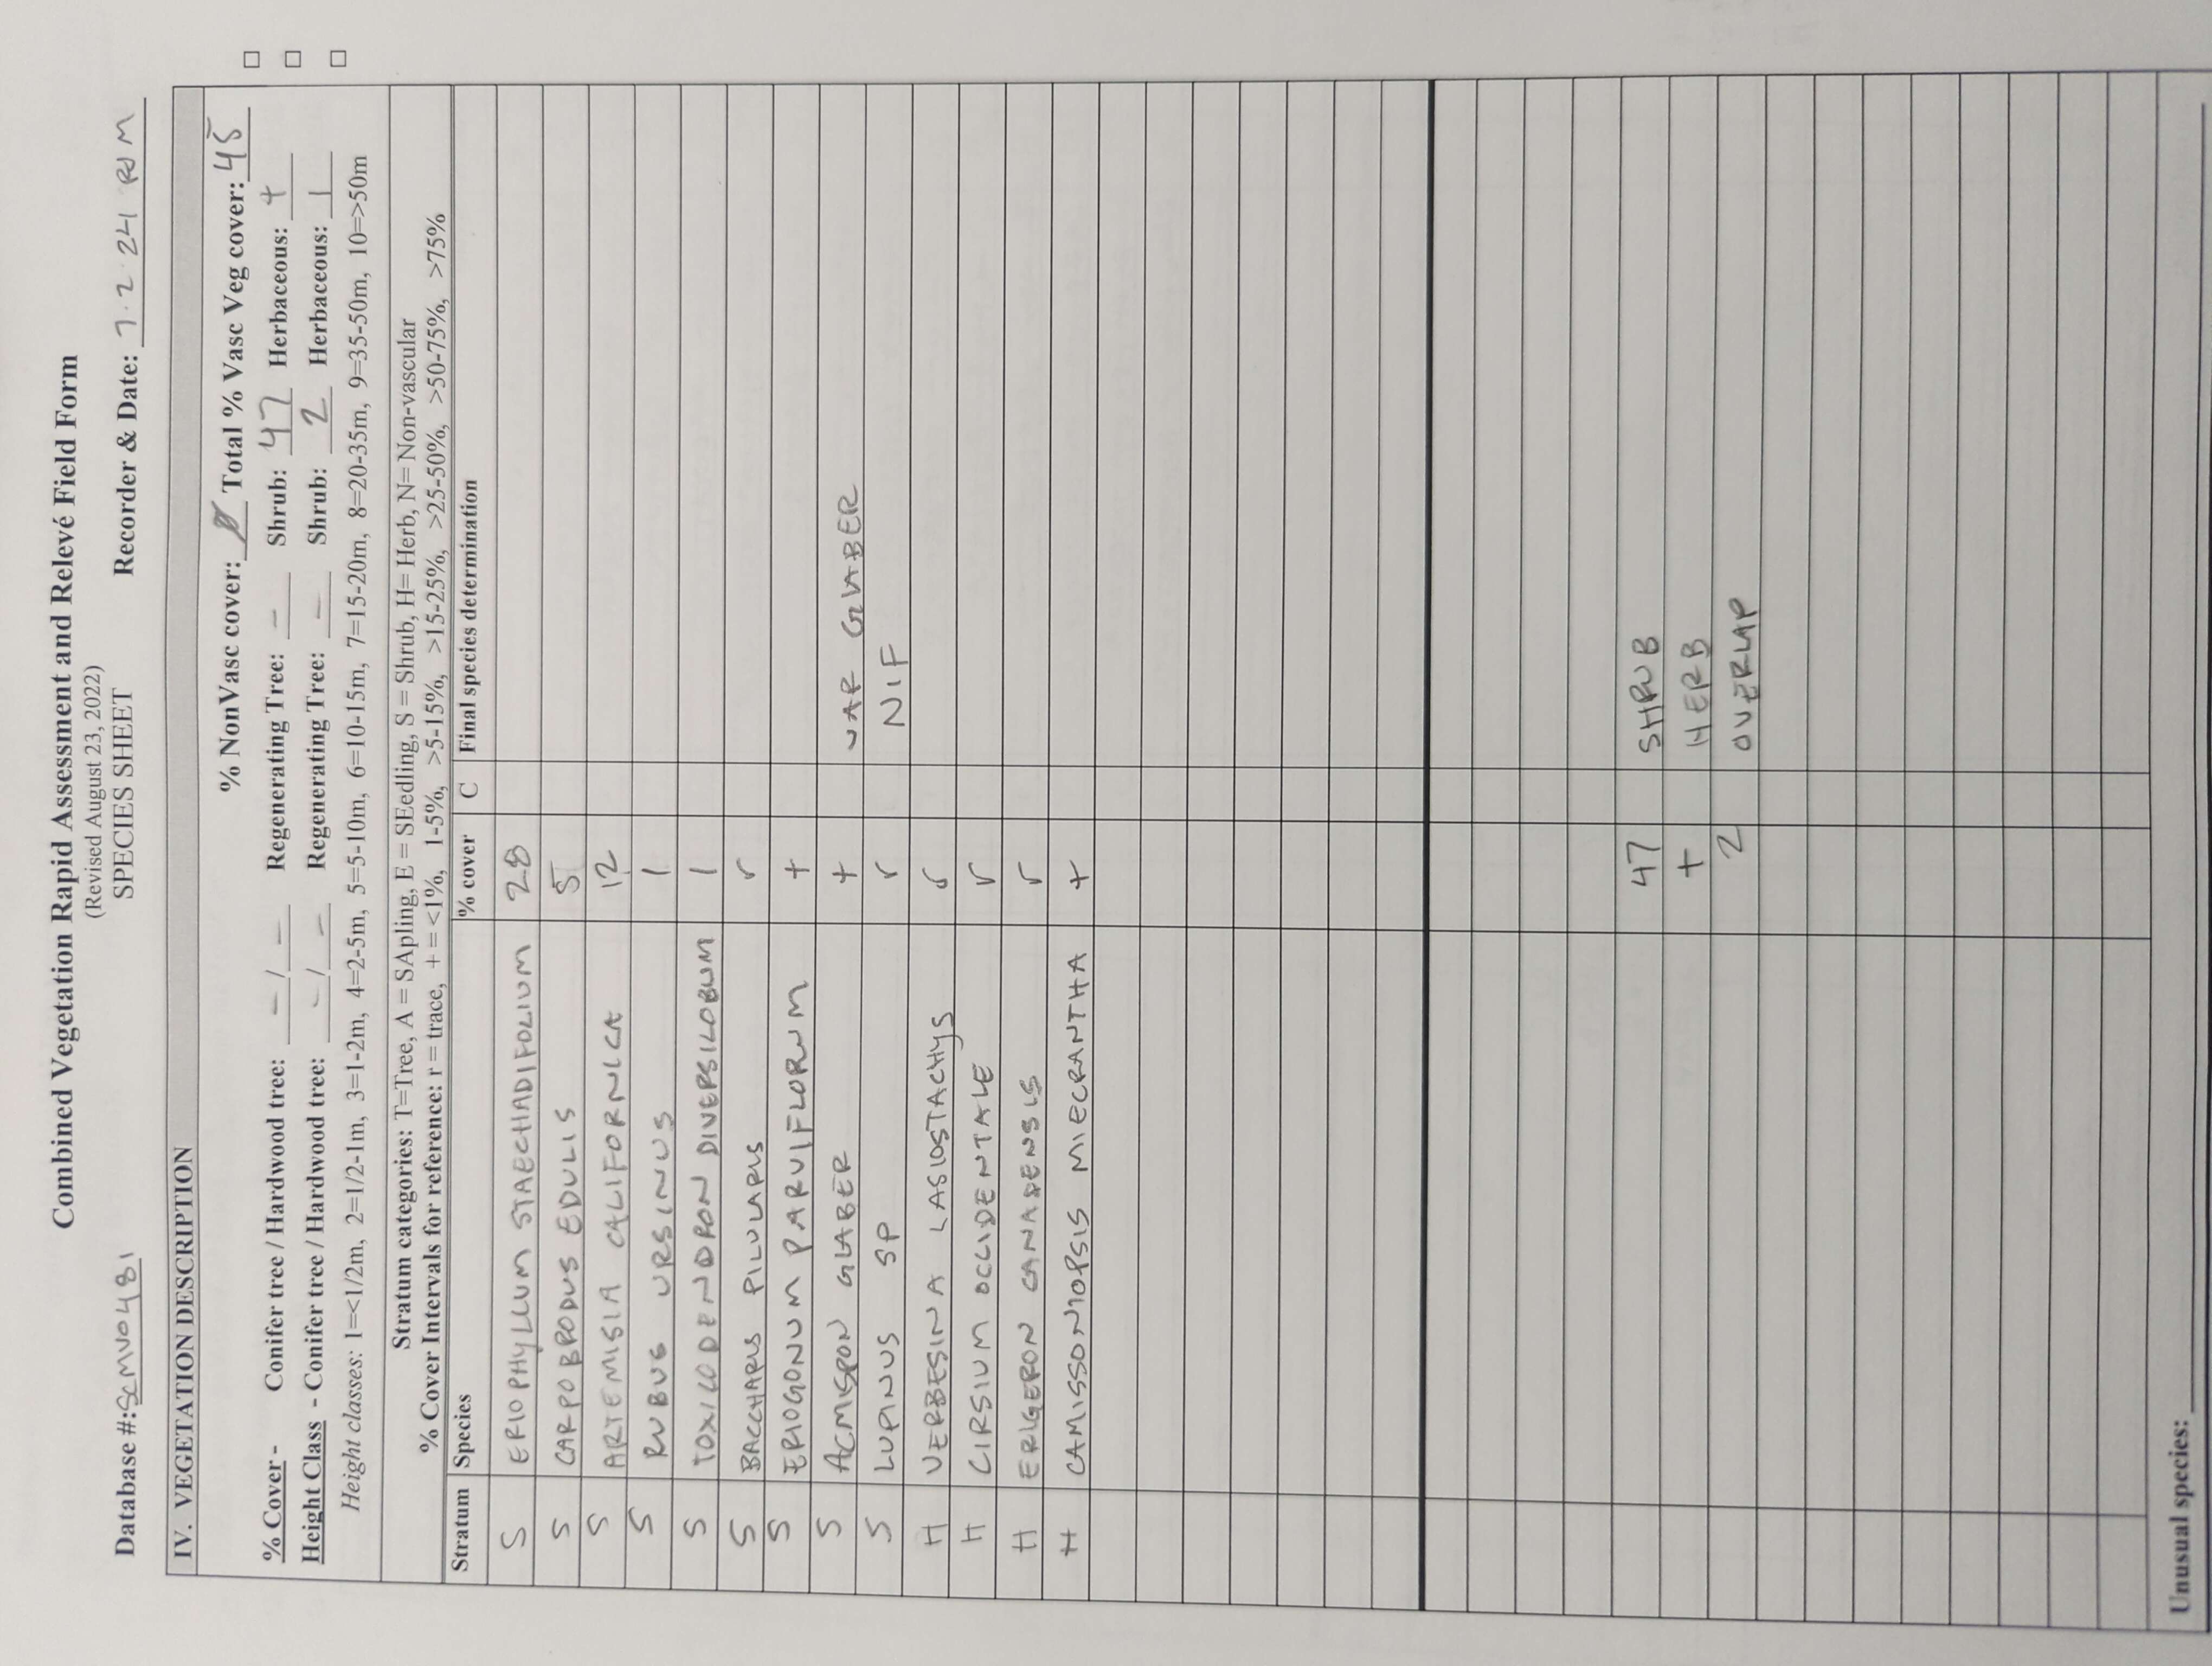 Combined Vegetation Rapid Assessment and Relevé Field Form
(Revised August 23, 2022)
Database #: SCMV0481 SPECIES SHEET Recorder & Date: 7.2.24 RJM
IV. VEGETATION DESCRIPTION
% NonVasc cover: Ø Total % Vasc Veg cover: 45
% Cover - Conifer tree / Hardwood tree: - / - Regenerating Tree: - Shrub: 47 Herbaceous: + □
Height Class - Conifer tree / Hardwood tree: - / - Regenerating Tree: - Shrub: 2 Herbaceous: 1 □
Height classes: 1=<1/2m, 2=1/2-1m, 3=1-2m, 4=2-5m, 5=5-10m, 6=10-15m, 7=15-20m, 8=20-35m, 9=35-50m, 10=>50m
Stratum categories: T=Tree, A = SApling, E = SEedling, S = Shrub, H= Herb, N= Non-vascular
% Cover Intervals for reference: r = trace, + = <1%, 1-5%, >5-15%, >15-25%, >25-50%, >50-75%, >75%
Stratum Species % cover C Final species determination
S ERIOPHYLLUM STAECHADIFOLIUM 28
S CARPOBRODUS EDULIS 5
S ARTEMISIA CALIFORNICA 12
S RUBUS URSINUS 1
S TOXICODENDRON DIVERSILOBUM 1
S BACCHARIS PILULARIS r
S ERIOGONUM PARVIFLORUM +
S ACMISPON GLABER + VAR GLABER
S LUPINUS SP r NIF
H VERBESINA LASIOSTACHYS r
H CIRSIUM OCCIDENTALE r
H ERIGERON CANADENSIS r
H CAMISSONIOPSIS MIECRANTHA +
47 SHRUB
+ HERB
2 OVERLAP
Unusual species: